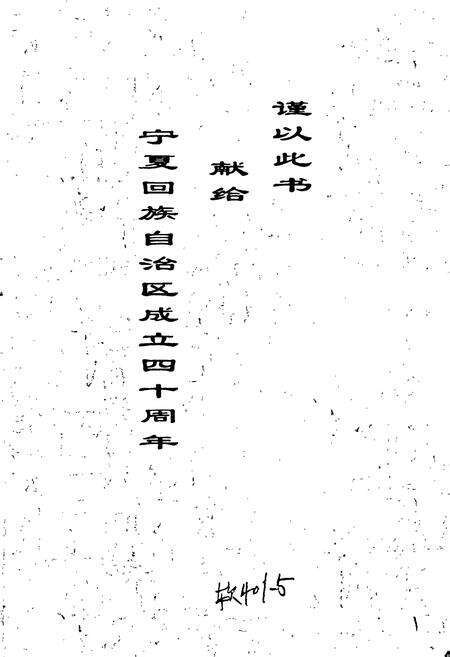 谨以此书
献给
宁夏回族自治区成立四十周年
软401-5